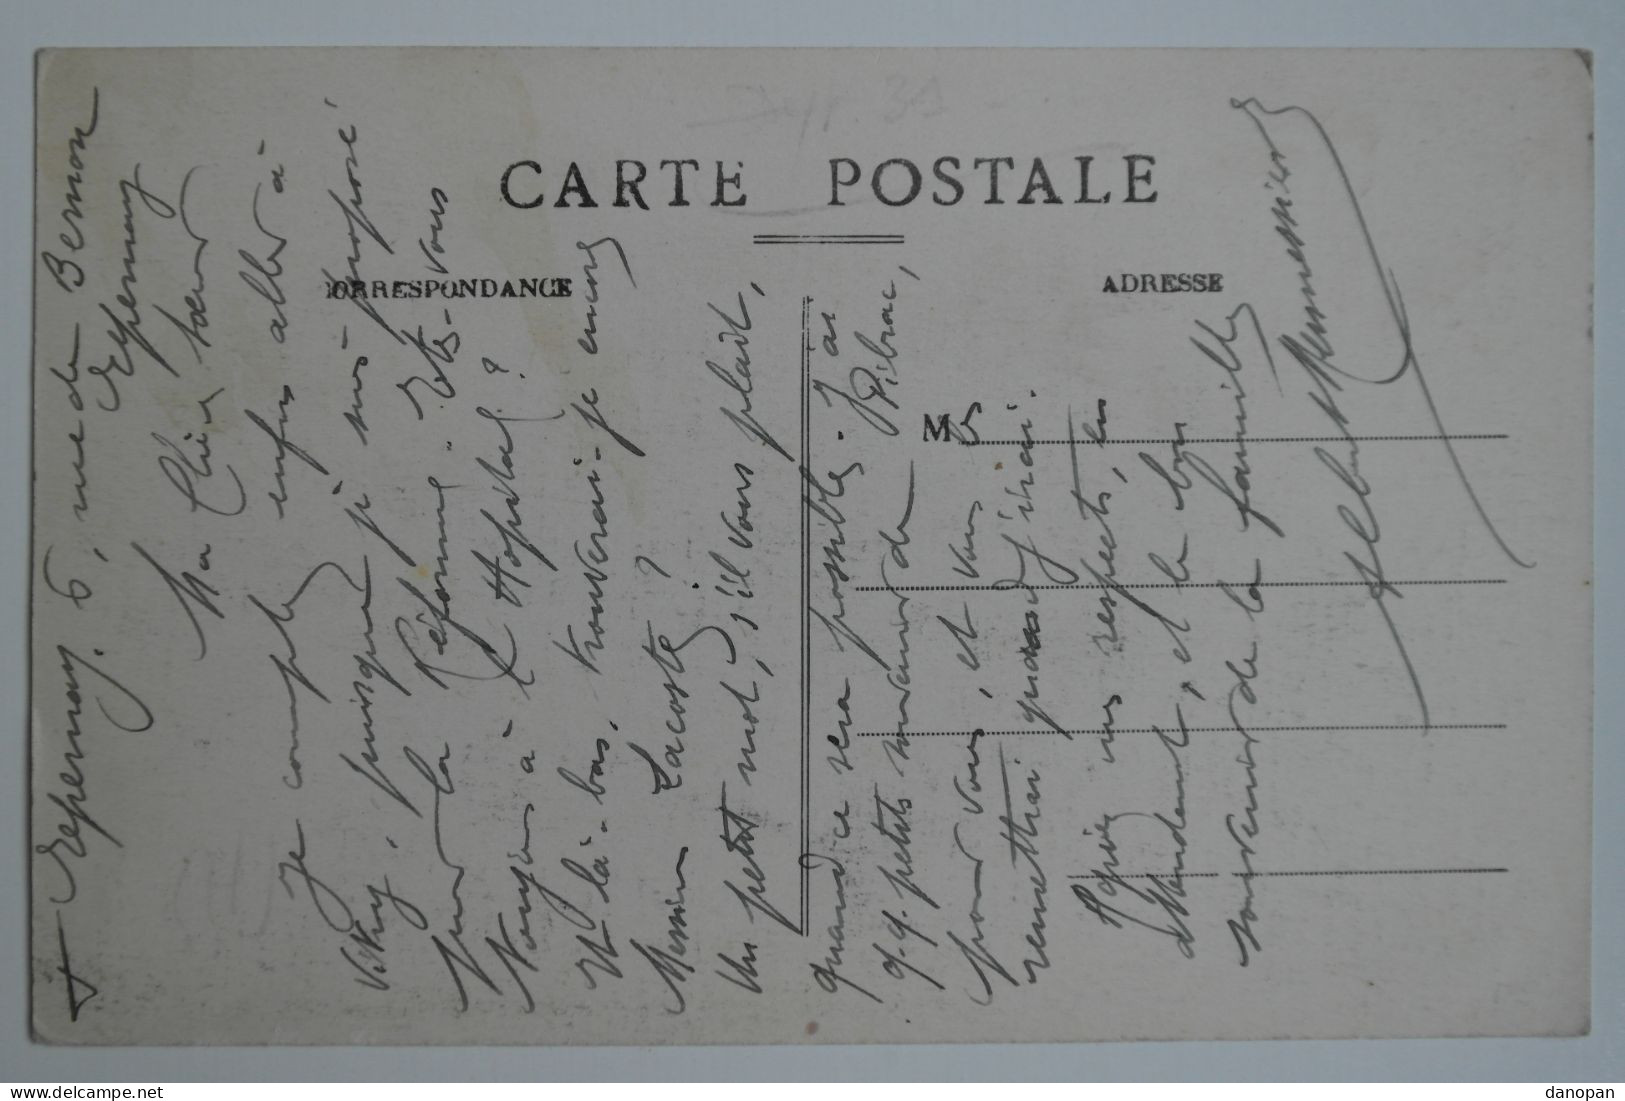 CARTE POSTALE
CORRESPONDANCE
ADRESSE
M
+ Epernay. 6, rue de Bernon
Epernay
Ma Chère Sœur
Je compte enfin aller à
Vitry, puisque je suis proposé
pour la Réforme. Etes-vous
toujours à l'Hopital ?
Et là-bas, trouverai-je encore
Messieu Lacoste ?
Un petit mot, s'il vous plait,
quand ce sera possible. J'ai
q.q. petits souvenirs de Pibrac,
pour vous, et vous les
remettrai quand j'irai.
Agréez mes respects, en
attendant, et le bon
souvenir de la famille
Albert Mennessier
danopan